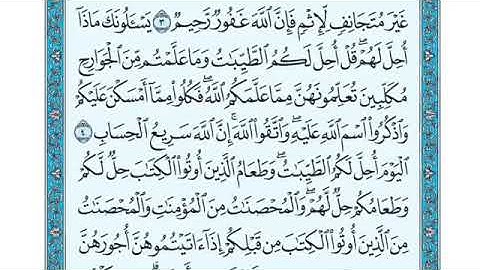 غَيْرَ مُتَجَانِفٍ لِّإِثْمٍ فَإِنَّ ٱللَّهَ غَفُورٌ رَّحِيمٌ ٣ يَسْـَٔلُونَكَ مَاذَآ
أُحِلَّ لَهُمْ ۖ قُلْ أُحِلَّ لَكُمُ ٱلطَّيِّبَـٰتُ وَمَا عَلَّمْتُم مِّنَ ٱلْجَوَارِحِ
مُكَلِّبِينَ تُعَلِّمُونَهُنَّ مِمَّا عَلَّمَكُمُ ٱللَّهُ ۖ فَكُلُوا۟ مِمَّآ أَمْسَكْنَ عَلَيْكُمْ
وَٱذْكُرُوا۟ ٱسْمَ ٱللَّهِ عَلَيْهِ ۖ وَٱتَّقُوا۟ ٱللَّهَ ۚ إِنَّ ٱللَّهَ سَرِيعُ ٱلْحِسَابِ ٤
ٱلْيَوْمَ أُحِلَّ لَكُمُ ٱلطَّيِّبَـٰتُ ۖ وَطَعَامُ ٱلَّذِينَ أُوتُوا۟ ٱلْكِتَـٰبَ حِلٌّ لَّكُمْ
وَطَعَامُكُمْ حِلٌّ لَّهُمْ ۖ وَٱلْمُحْصَنَـٰتُ مِنَ ٱلْمُؤْمِنَـٰتِ وَٱلْمُحْصَنَـٰتُ
مِنَ ٱلَّذِينَ أُوتُوا۟ ٱلْكِتَـٰبَ مِن قَبْلِكُمْ إِذَآ ءَاتَيْتُمُوهُنَّ أُجُورَهُنَّ